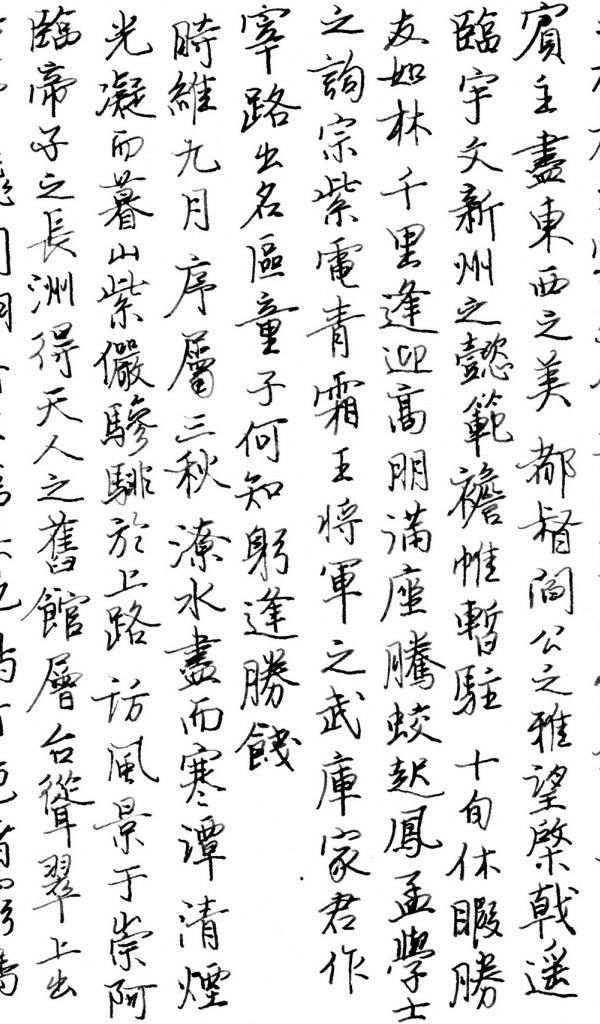 賓主盡東西之美都督閻公之雅望棨戟遥
臨宇文新州之懿範襜帷暫駐十旬休暇勝
友如林千里逢迎高朋滿座騰蛟起鳳孟學士
之詞宗紫電青霜王將軍之武庫家君作
宰路出名區童子何知躬逢勝餞
時維九月序屬三秋潦水盡而寒潭清煙
光凝而暮山紫儼驂騑於上路訪風景于崇阿
臨帝子之長洲得天人之舊館層台聳翠上出